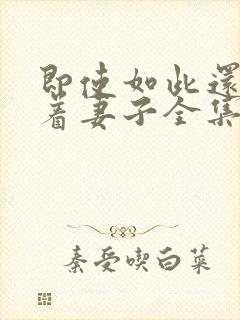 即使如此還
着妻子全集
秦受喫白菜